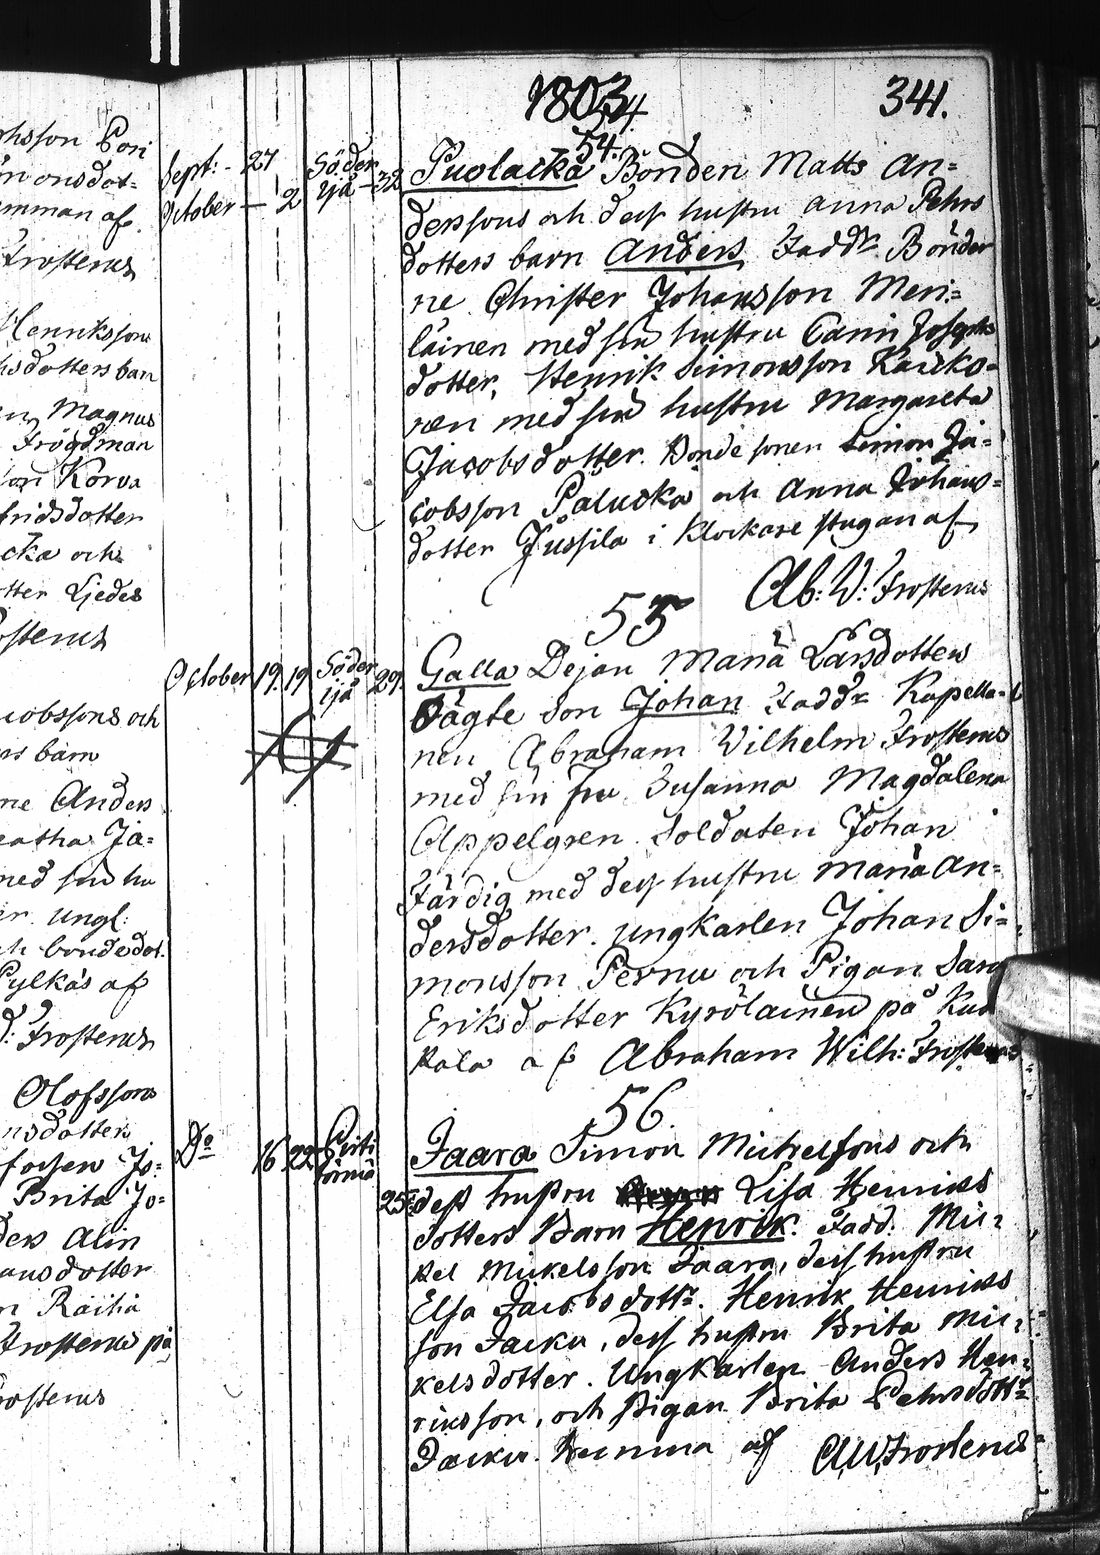 1803
4
341.
hsson Pori
onsdot-
emman af
Frosterus
Henriksson
hsdotters barn
Magnus
Frögdman
son Korva
fridsdotter
cka och
otter Ljedes
osterus
cobssons och
rs barn
ne Anders
eatha Ja=
med sin hu
er ungl:
ch bondedot.
Pylkäs af
d: Frosterus
Olofssons
nsdotters
Brita Jo=
ders Alin
ansdotter
n Raitia
Frosterus på
rosterus
54.
Sept: - 27
October — 2
Söder
yå - 32
Puolacka Bonden Matts An=
derssons och dess hustru Anna Pehrs
dotters barn Anders Faddr Bönder
ne Christer Johansson Meri=
läinen med sin hustru Carin Josephs
dotter, Henrik Simonsson Karko=
nen med sin hustru Margareta
Jacobsdotter. Bondesonen Simon Ja=
cobsson Palucka och Anna Johans=
dotter Jussila i Klockare stugan af
Ab: W: Frosterus
55
October 19. 19 Söder
yå 29.
Galla Dejan Maria Larsdotters
oägte son Johan Faddr Kapella=
nen Abraham Wilhelm Frosterus
med sin fru Susanna Magdalena
Appelgren Soldaten Johan
Färdig med dess hustru Maria An=
dersdotter. ungkarlen Johan Si=
monsson Pernu och Pigan Sara
Eriksdotter Kyröläinen på
kala af Abraham Wilh: Frosterus
56
Do 16 22
25
Jaara Simon Michelssons och
dess hustru Lisa Henriks
dotters Barn Henrik. Fadd. Mic=
kel Mickelsson Jaara, dess hustru
Elsa Jacobsdottr. Henrik Henriks
son Jacku, dess hustru Brita Mic=
kelsdotter. Ungkarlen Anders Hen=
riksson, och Pigan Brita Pehrsdottr
Jacku. hemma af A.W. Frosterus